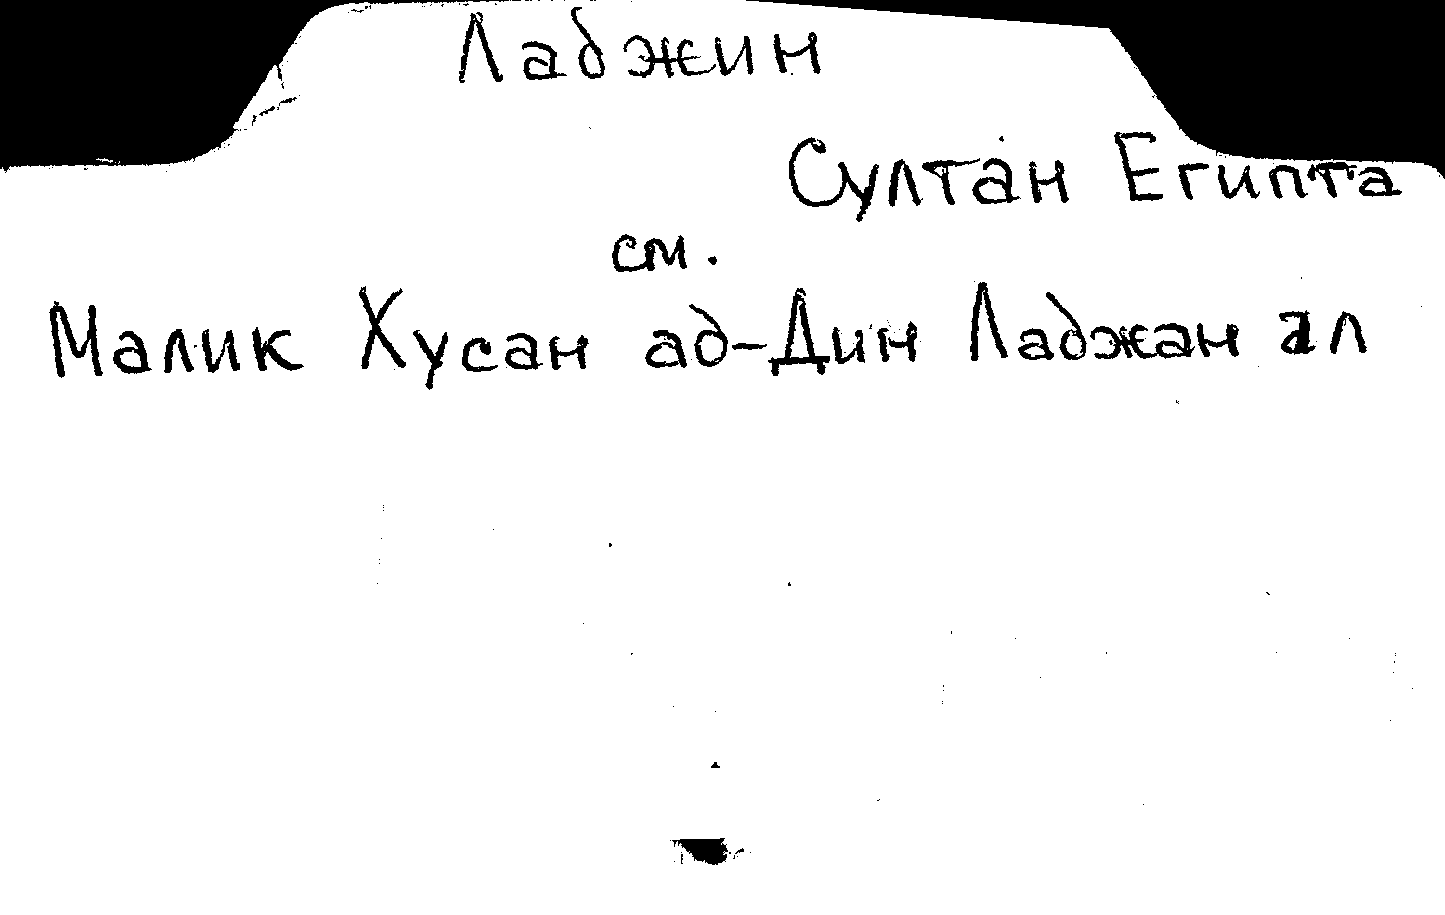 Ладжин
Султан Египта
см.
Малик Хусан ад-Дин Ладжан ал